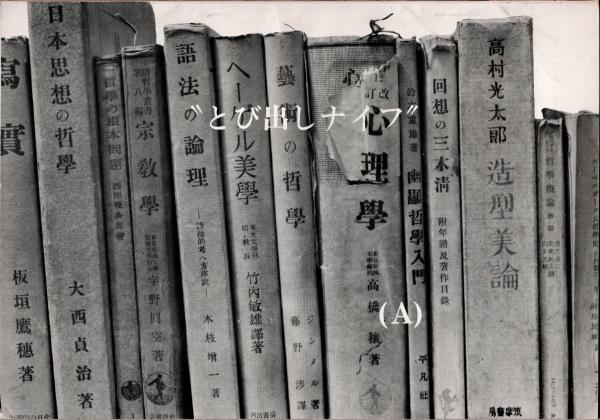 〝とび出しナイフ〟
(A)
寫實
板垣鷹穂著
日本思想の哲學
大西貞治著
哲學の根本問題
西田幾多郎著
宗教學
宇野圓空著
語法の論理
木枝增一著
ヘーゲル美學
竹内敏雄譯著
藝術の哲學
ジンメル著
藤野渉譯
改訂
心理學
高橋穰著
幽顯哲學入門
平凡社
回想の三木清
附年譜及著作目録
高村光太郎
造型美論
筑摩書房